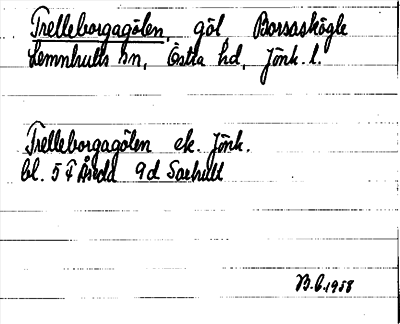 Trelleborgagölen, göl Borsaskögle
Lemnhults sn, Östra hd, Jönk. l.
Trelleborgagölen ek. Jönk.
bl. 5 f Åseda 9d Saxhult
B.C.1958